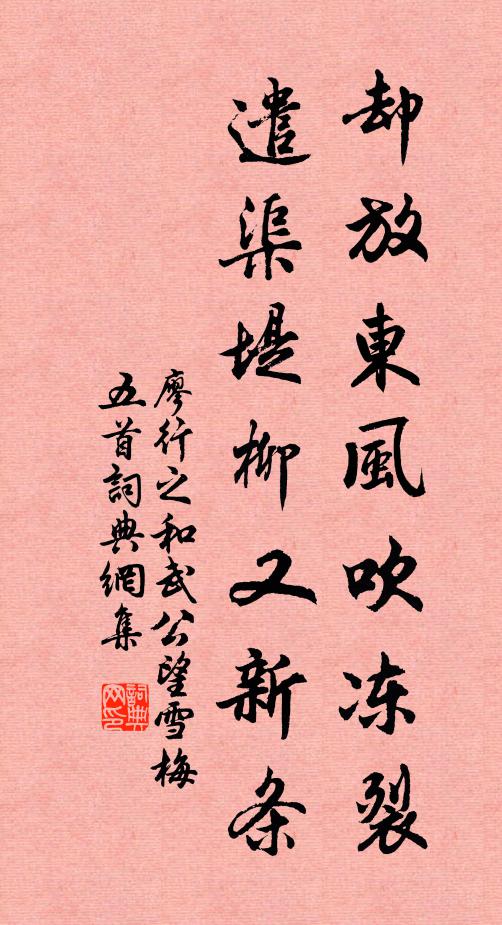 却放東風吹冻裂
遣渠堤柳又新条
廖行之和武公望雪梅
五首詞典網集
詞典网印